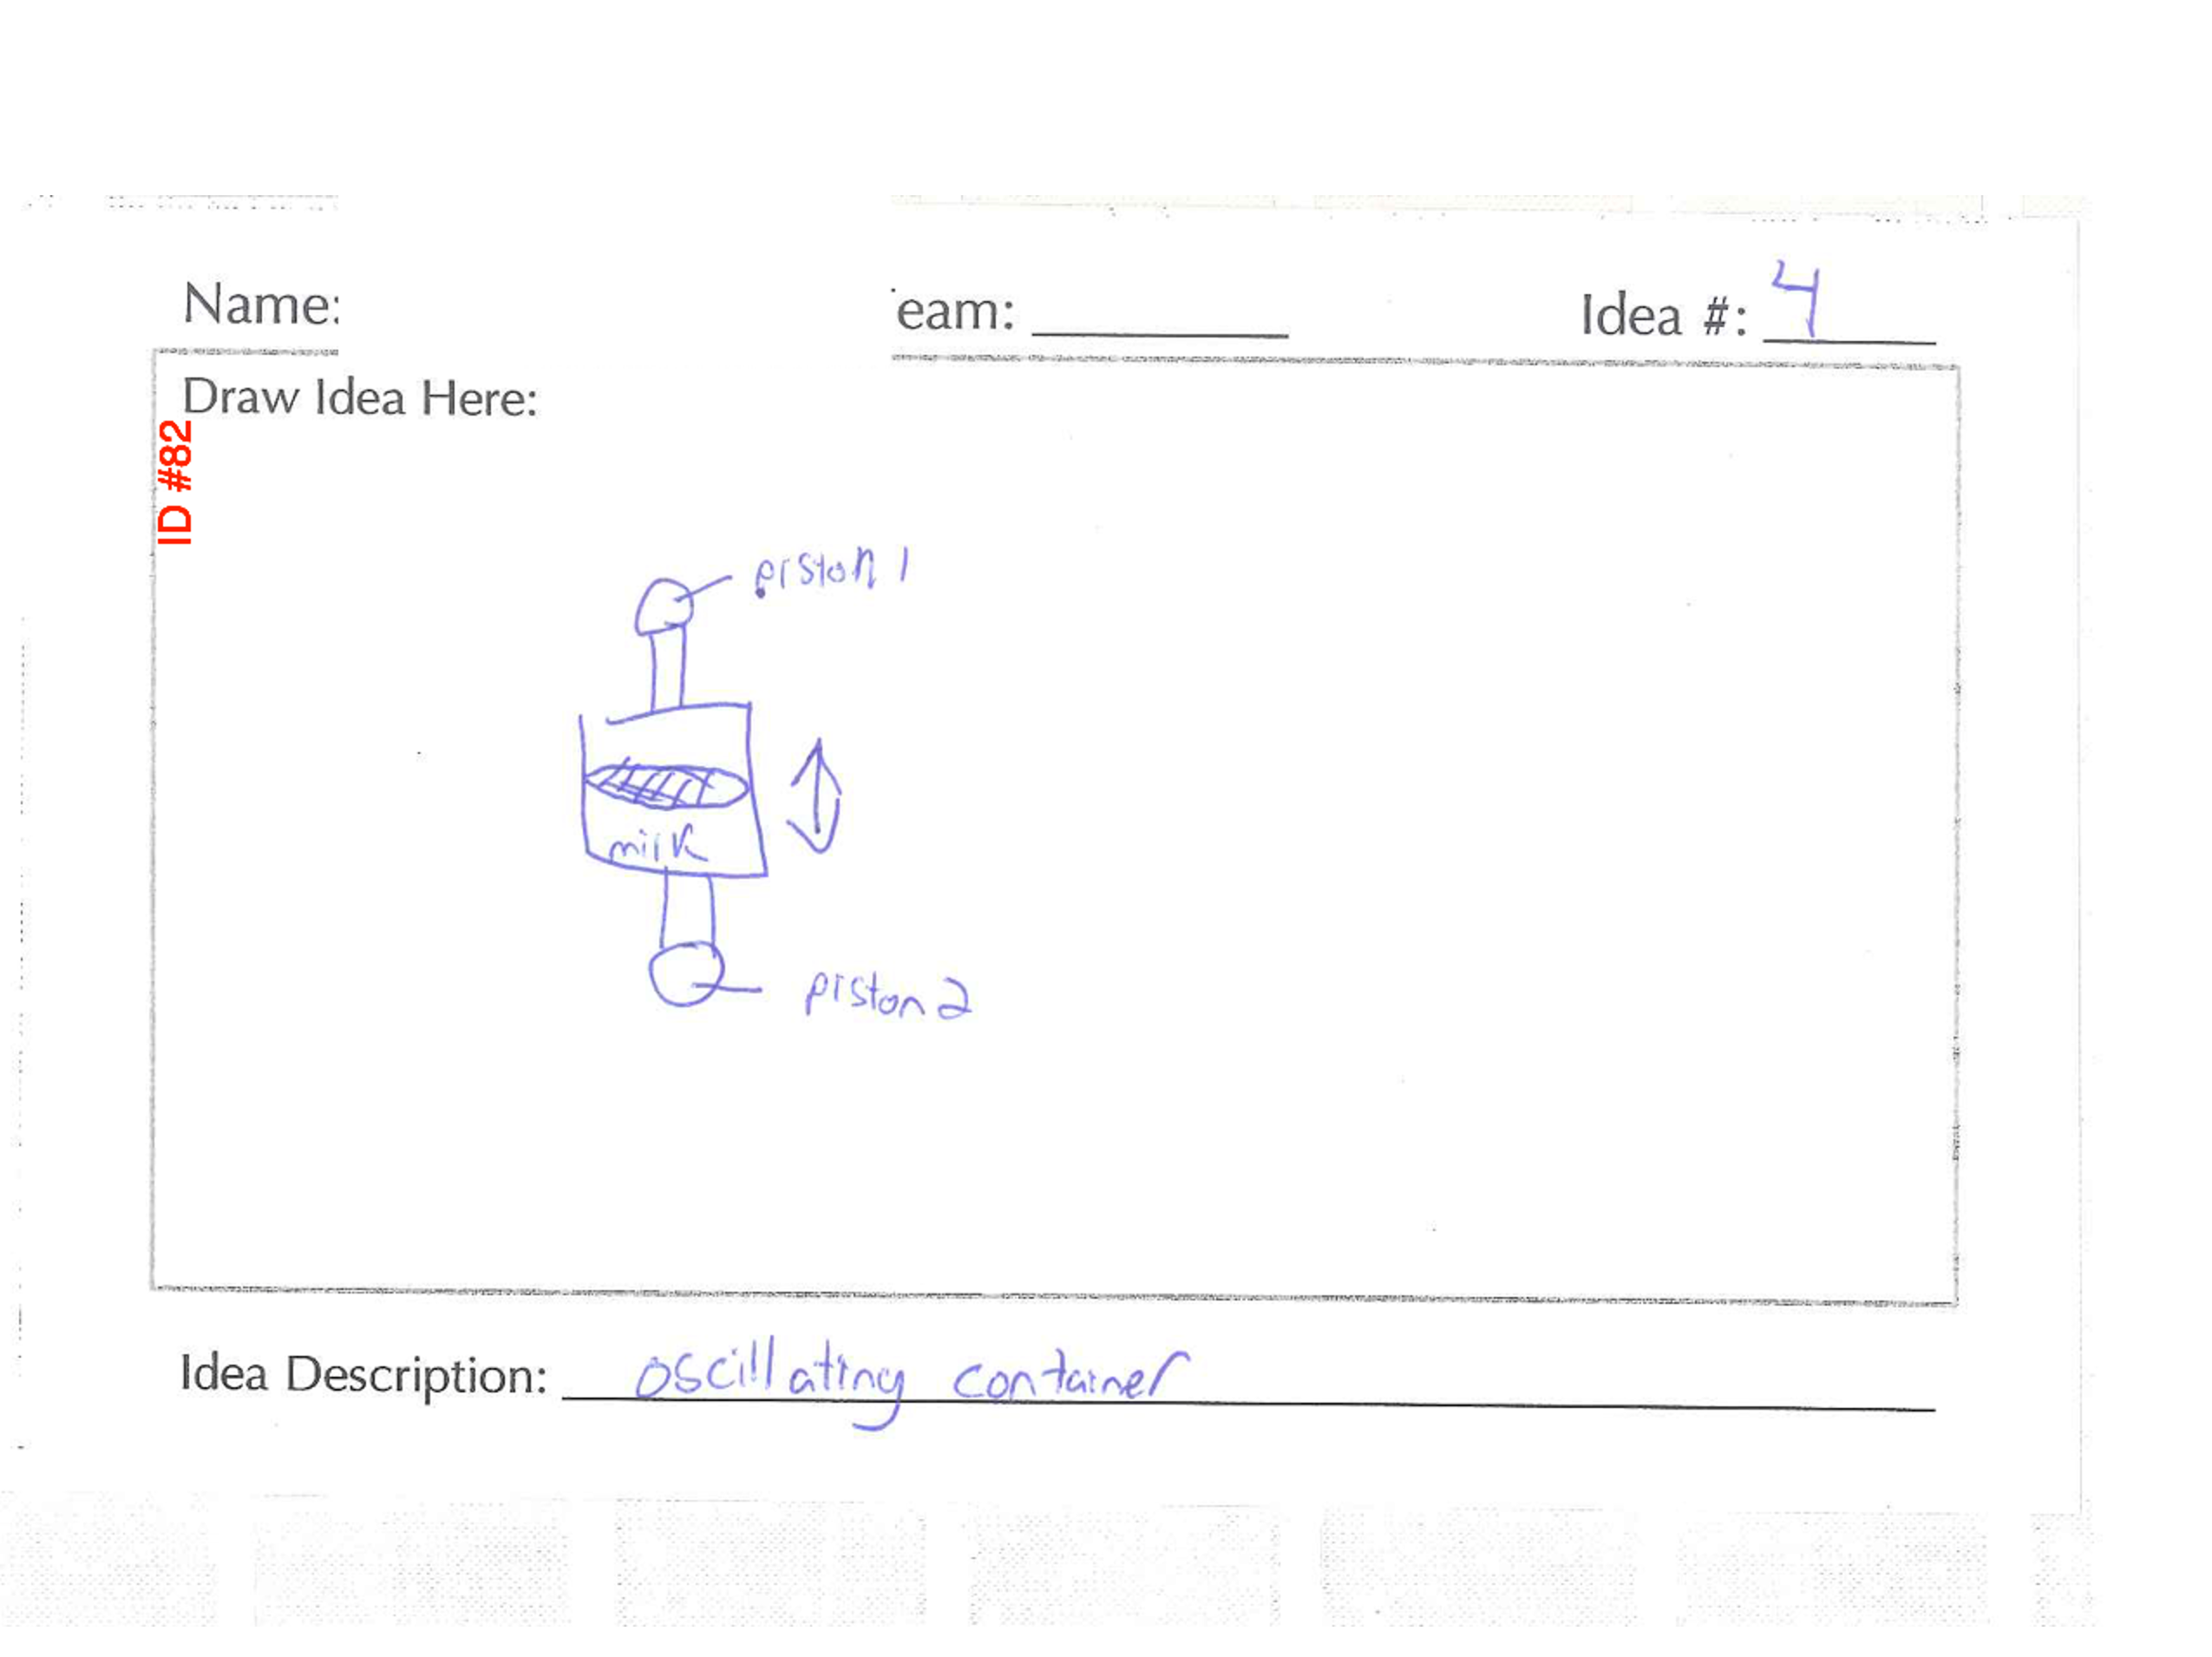 Name:
eam:
Idea #: 4
Draw Idea Here:
ID #82
piston 1
milk
piston 2
Idea Description: oscillating container